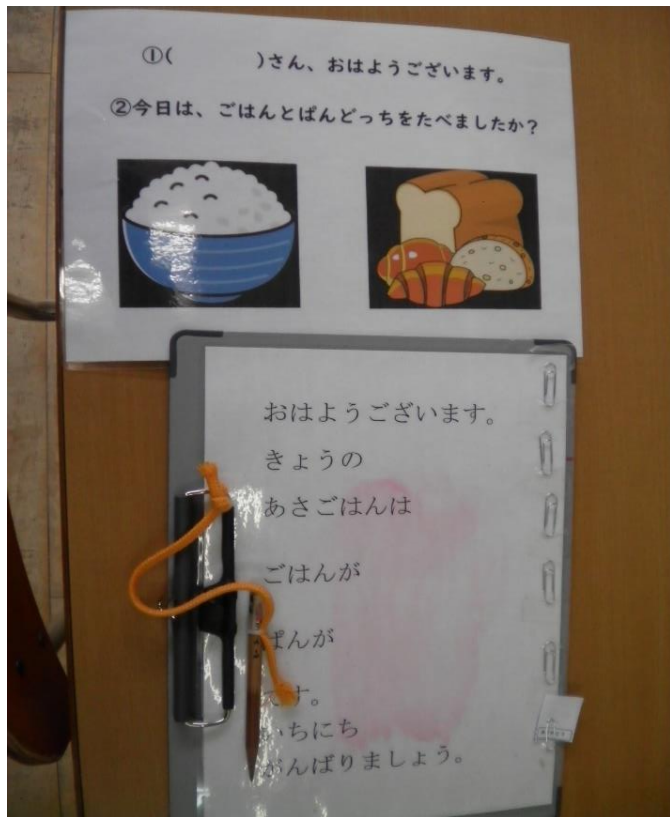 ①(　　　　)さん、おはようございます。
②今日は、ごはんとぱんどっちをたべましたか？
おはようございます。
きょうの
あさごはんは
ごはんが
ぱんが
です。
いちにち
がんばりましょう。